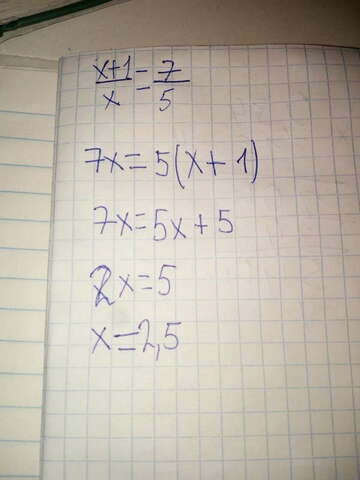 x+1/x = 7/5
7x=5(x+1)
7x=5x+5
2x=5
x=2,5